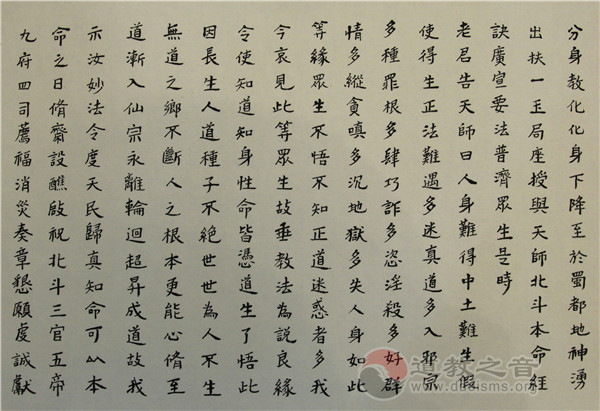 分身教化化身下降至於蜀都地神湧
出扶一玉局座授與天師北斗本命經
訣廣宣要法普濟眾生是時
老君告天師曰人身難得中土難生假
使得生正法難遇多迷真道多入邪宗
多種罪根多肆巧詐多恣淫殺多好群
情多縱貪嗔多沉地獄多失人身如此
等緣眾生不悟不知正道迷惑者多我
今哀見此等眾生故垂教法為說良緣
令使知道知身性命皆憑道生了悟此
因長生人道種子不絕世世為人不生
無道之鄉不斷人之根本更能心脩至
道漸入仙宗永離輪迴超昇成道故我
示汝妙法令度天民歸真知命可以本
命之日脩齋設醮啟祝北斗三官五帝
九府四司薦福消災奏章懇願虔誠獻
道教之音
www.daoisms.org